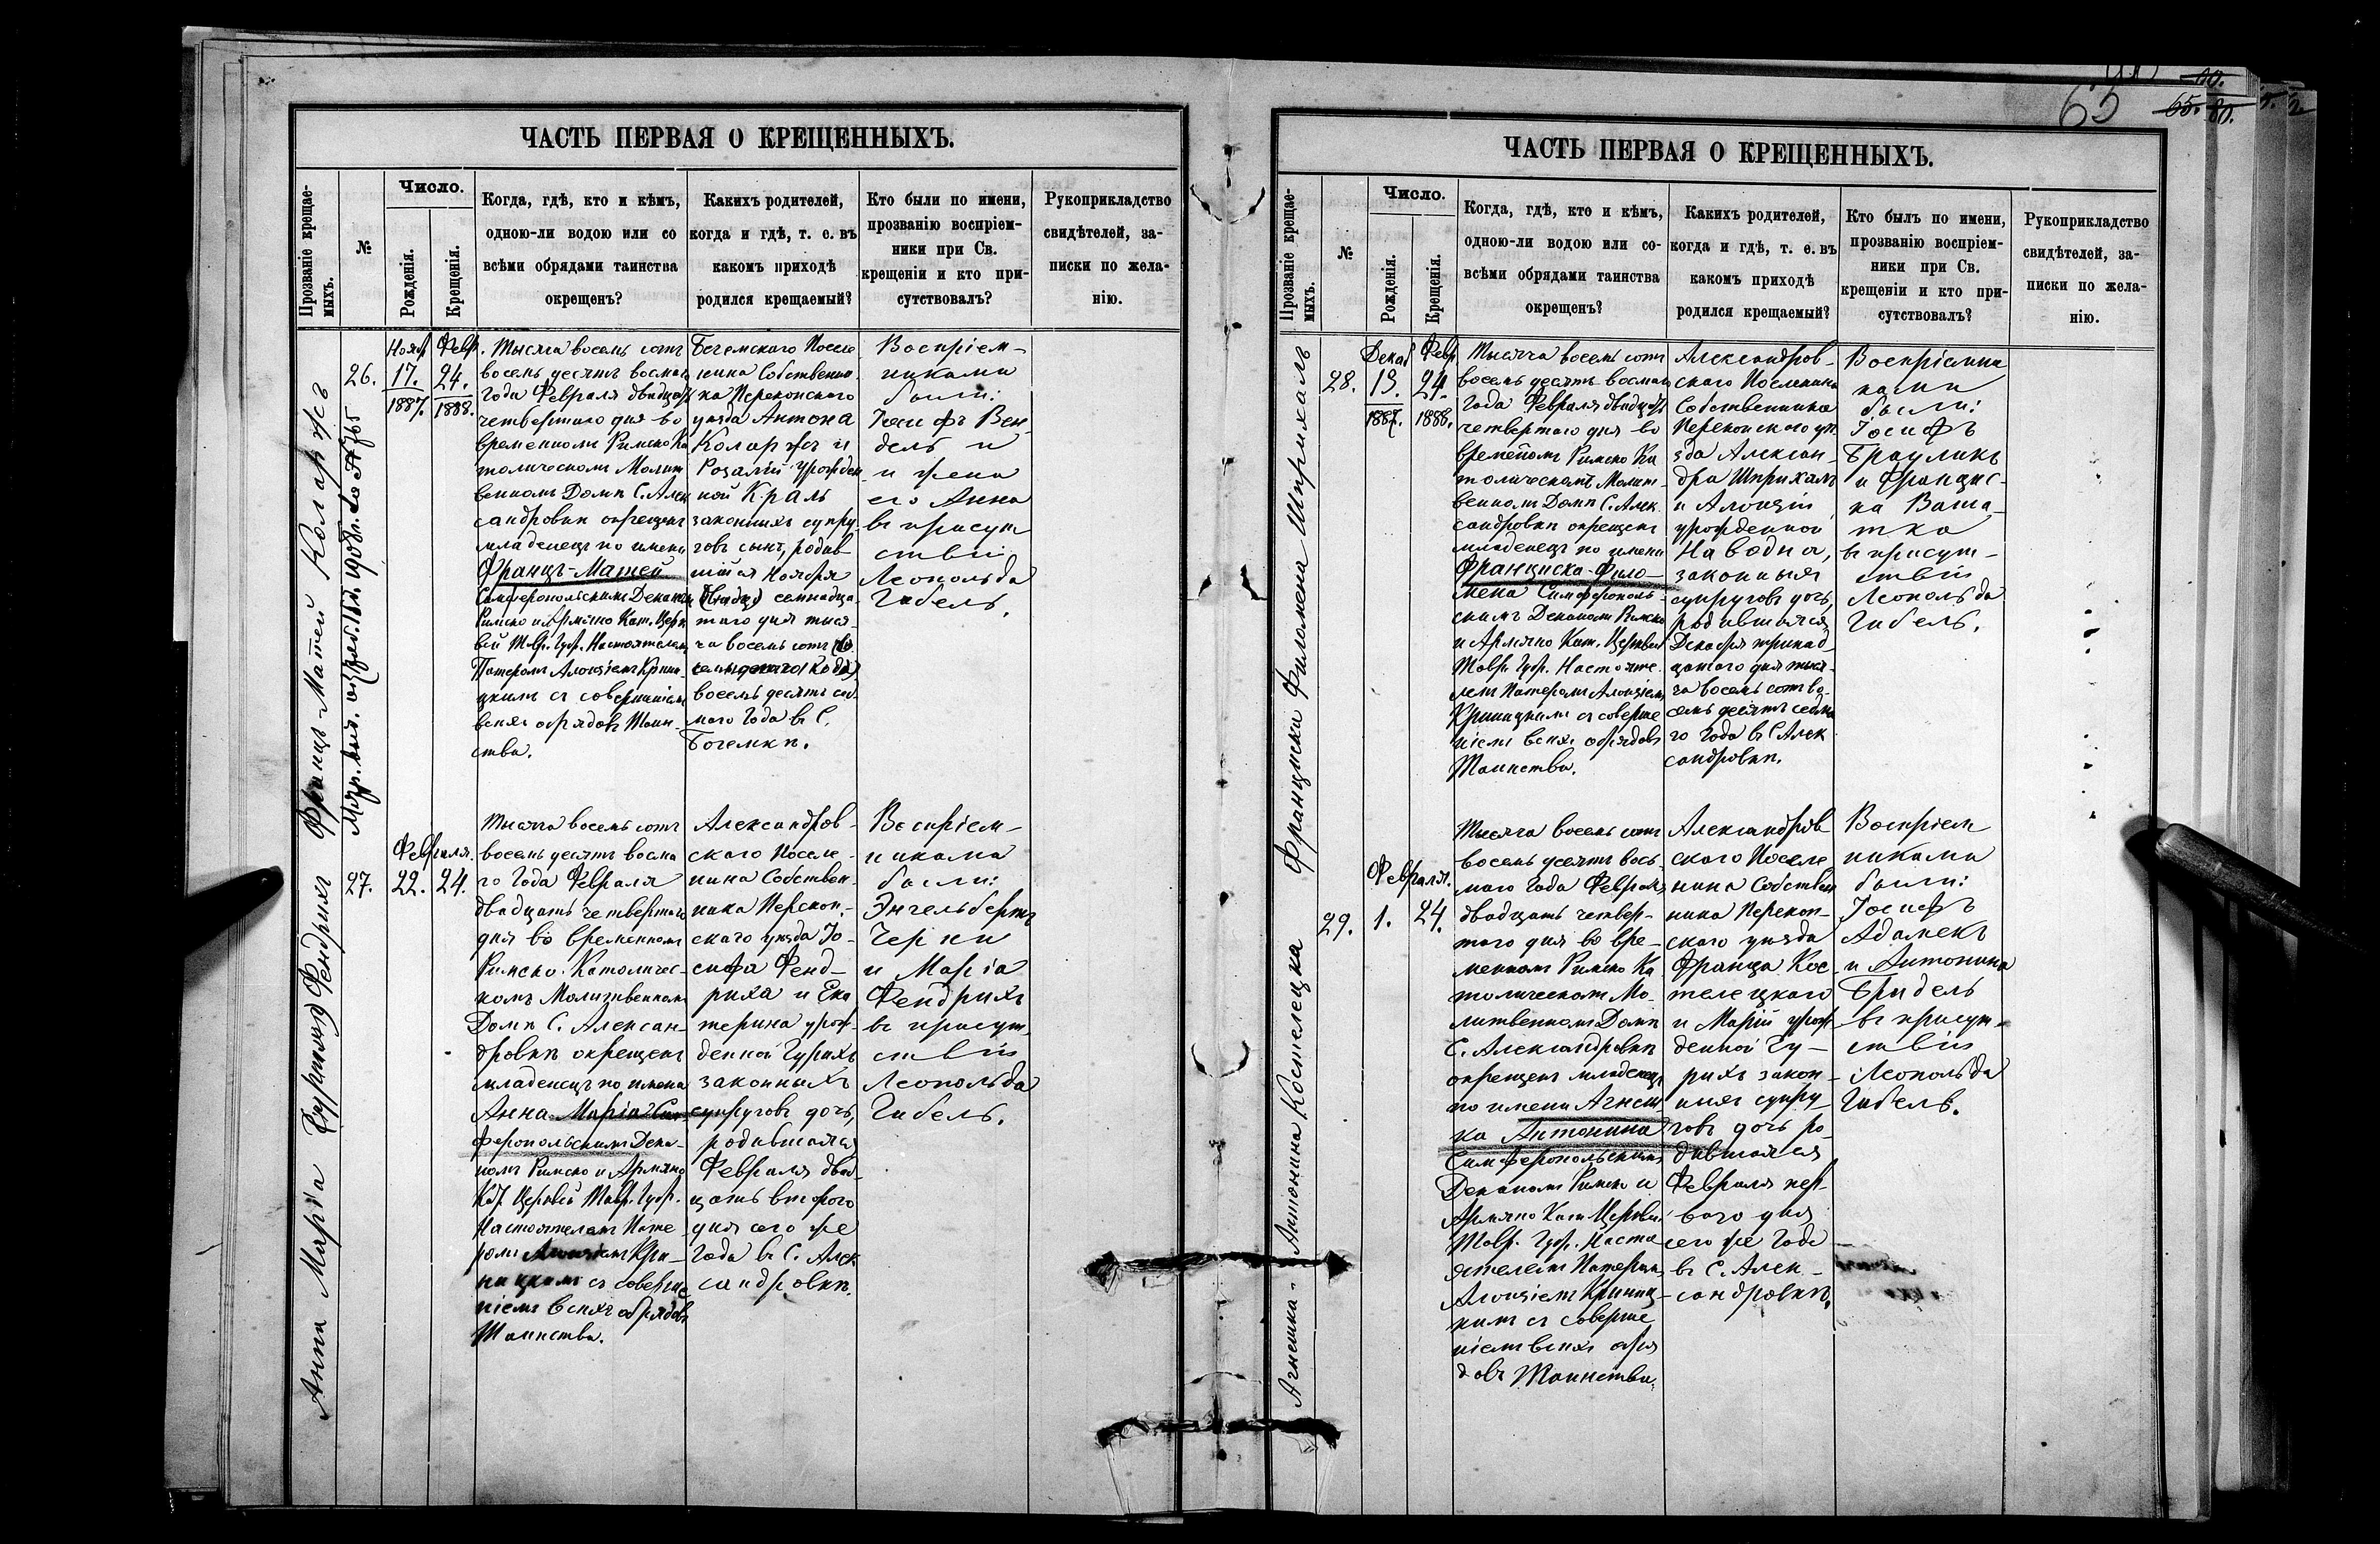 ЧАСТЬ ПЕРВАЯ О КРЕЩЕННЫХЪ.
Прозваніе крещае-
мыхъ.
№
Число.
Рожденія.
Крещенія.
Когда, гдѣ, кто и кѣмъ,
одною-ли водою или со
всѣми обрядами таинства
окрещенъ?
Какихъ родителей,
когда и гдѣ, т. е. въ
какомъ приходѣ
родился крещаемый?
Кто были по имени,
прозванію воспріем-
ники при Св.
крещеніи и кто при-
сутствовалъ?
Рукоприкладство
свидѣтелей, за-
писки по жела-
нію.
Францъ-Матей Коларжъ
26.
Нояб
17.
1887.
Февр.
24.
1888.
Тысяча восемь сотъ
восемь десятъ восмаго
года Февраля двадцать
четвертаго дня во
временномъ Римско Ка
толическомъ Молит
венномъ Домѣ С. Алек
сандровкѣ окрещенъ
младенецъ по имени
Францъ-Матей
Симферопольскимъ Деканомъ
Римско и Армяно Кат. Церк
вей Тавр. Губ. Настоятелемъ
Патеромъ Алоизіемъ Крини
цкимъ съ совершеніемъ
всѣхъ обрядовъ Таин-
ства.
Богемскаго Поселе
нина Собственни
ка Перекопскаго
уѣзда Антона
Коларжъ и
Розаліи урожден
ной Краль
законныхъ супру
говъ сынъ, родив
шійся Ноября
семнадца-
таго дня тыся-
ча восемь сотъ
восемь десятъ сед
маго года въ С.
Богемкѣ.
Воспріем-
никами
были:
Іосифъ Вен
дель и
и жена
его Анна
въ присут
ствіи
Леопольда
Гибель.
Анна Марія Фендрихъ
27.
Февраля.
22.
24.
Тысяча восемь сотъ
восемь десятъ восма
го года Февраля
двадцать четвертаго
дня во временномъ
Римско-Католичес-
комъ Молитвенномъ
Домѣ С. Алексан-
дровкѣ окрещенъ
младенецъ по имени
Анна-Марія Сим-
феропольскимъ Дека-
номъ Римско и Армяно
Кат. Церквей Тавр. Губ.
Настоятелемъ Пате
ромъ Алоизіемъ Кри-
ницкимъ съ соверше
ніемъ всѣхъ обрядовъ
Таинства.
Александров-
скаго Поселе-
нина Собствен-
ника Перекоп-
скаго уѣзда Іо-
сифа Фенд-
риха и Ека
терина урож-
денной Гурихъ
законныхъ
супруговъ дочь,
родившаяся
Февраля двад-
цать втораго
дня сего же
года въ С. Алек
сандровкѣ.
Воспріем-
никами
были:
Энгельбертъ
Черни
и Марія
Фендрихъ
въ присут-
ствіи
Леопольда
Гибель.
ЧАСТЬ ПЕРВАЯ О КРЕЩЕННЫХЪ.
63
65.
80.
Прозваніе крещае-
мыхъ.
№
Число.
Рожденія.
Крещенія.
Когда, гдѣ, кто и кѣмъ,
одною-ли водою или со-
всѣми обрядами таинства
окрещенъ?
Какихъ родителей,
когда и гдѣ, т. е. въ
какомъ приходѣ
родился крещаемый?
Кто былъ по имени,
прозванію воспріем-
ники при Св.
крещеніи и кто при-
сутствовалъ?
Рукоприкладство
свидѣтелей, за-
писки по жела-
нію.
Франциска Филомена Шприхалъ
28.
Декаб
13.
1887.
Февр
24.
1888.
Тысяча восемь сотъ
восемь десятъ восмаго
года Февраля двадцать
четвертаго дня во
временномъ Римско Ка
толическомъ Молит-
венномъ Домѣ С. Алек
сандровкѣ окрещенъ
младенецъ по имени
Франциска-Фило-
мена Симферополь-
скимъ Деканомъ Римско
и Армяно Кат. Церквей
Тавр. Губ. Настояте-
лемъ Патеромъ Алоизіемъ
Криницкимъ съ соверше
ніемъ всѣхъ обрядовъ
Таинства.
Александров-
скаго Поселенина
Собственника
Перекопскаго уѣ
зда Алексан-
дра Шприхалъ
и Алоизіи
урожденной
Наводна,
законныя
супруговъ дочь,
родившаяся
Декабря тринад
цатаго дня тыся-
ча восемь сотъ во-
семь десятъ седма
го года въ С. Алек
сандровкѣ.
Воспріемни
ками
были:
Іосифъ
Брауликъ
и Францис-
ка Ваша-
тка
въ присут-
ствіи
Леопольда
Гибель.
Агнешка - Антонина Костелецка
29.
Февраля.
1.
24.
Тысяча восемь сотъ
восемь десятъ вось-
маго года Февраля
двадцать четвер-
таго дня во вре-
менномъ Римско Ка
толическомъ Мо-
литвенномъ Домѣ
С. Александровкѣ
окрещенъ младенецъ
по имени Агнеш
ка Антонина
Симферопольскимъ
Деканомъ Римско и
Армяно Кат Церквей
Тавр. Губ. Насто
ятелемъ Патеромъ
Алоизіемъ Криниц-
кимъ съ соверше
ніемъ всѣхъ обря
довъ Таинства.
Александров
скаго Поселе
нина Собствен
ника Перекоп-
скаго уѣзда
Франца Кос-
телецкаго
и Маріи урож
денной Гу-
рихъ закон-
ныя супру-
говъ дочь ро-
дившаяся
Февраля пер-
ваго дня
сего же года
въ С. Алек-
сандровкѣ.
Воспріем
никами
были:
Іосифъ
Адамекъ
и Антонина
Бридель
въ присут-
ствіи
Леопольда
Гибель.